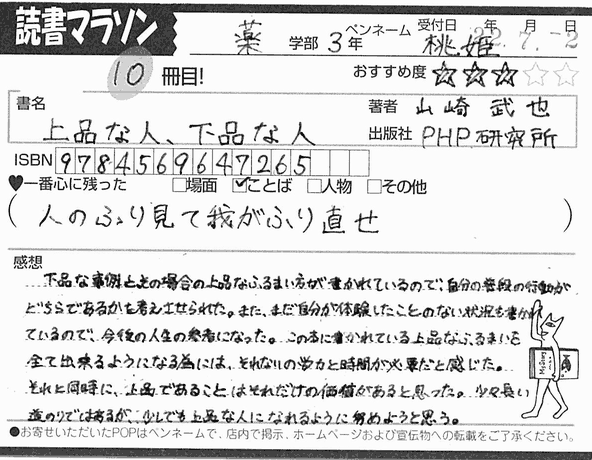 読書マラソン
薬 学部 3年 ペンネーム 桃姫 受付日 年 月 日
22.7.-2
10 冊目! おすすめ度 ★★★☆☆
書名 上品な人、下品な人
著者 山崎 武也
出版社 PHP研究所
ISBN 9784569647265
♥一番心に残った □場面 ☑ことば □人物 □その他
(人のふり見て我がふり直せ)
感想
下品な事例とその場合の上品なふるまい方が書かれているので、自分の普段の行動が
どちらであるかを考えさせられた。また、まだ自分が体験したことのない状況も書かれ
ているので、今後の人生の参考になった。この本に書かれている上品なふるまいを
全て出来るようになる為には、それないの労力と時間が必要だと感じた。
それと同時に、上品であることはそれだけの価値があると思った。少々長い
道のりではあるが、少しでも上品な人になれるように努めようと思う。
●お寄せいただいたPOPはペンネームで、店内で掲示、ホームページおよび宣伝物への転載をご了承ください。